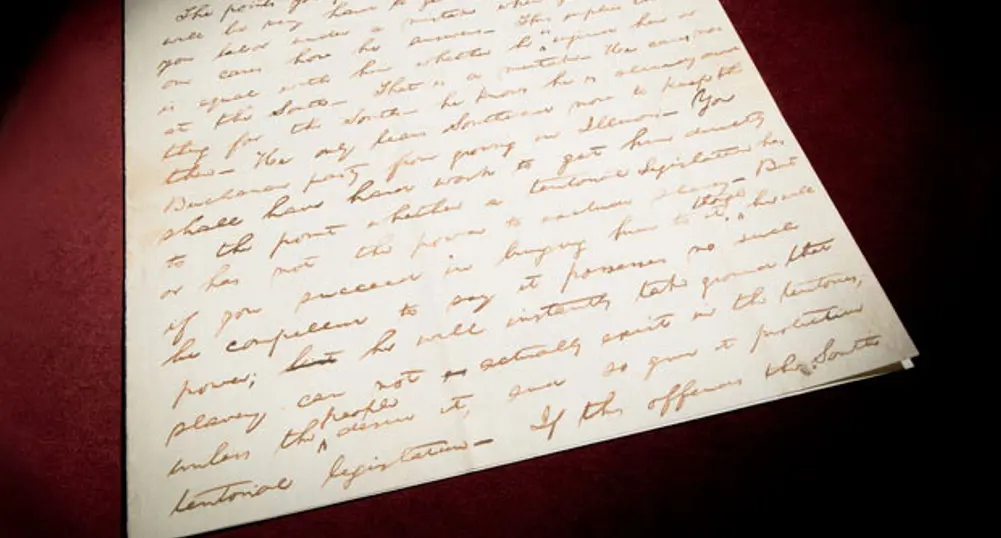 The points you
will be very hard to get
you labor under a mistake when you
one cares how he answers — This implies
is equal with him whether he is injured here or
at the South — That is a mistake — He cares no-
thing for the South — he knows he is already dead
there — He only leans Southward now to keep the
Buchanan party from growing in Illinois — You
shall have hard work to get him directly
to the point whether a teritorial legislature has
or has not the power to exclude slavery — But
if you succeed in bringing him to it, though he will
be compelled to say it possesses no such
power; but he will instantly take ground that
slavery can not actually exist in the teritories,
unless the people desire it, and so give it protective
teritorial legislation — If this offends the South